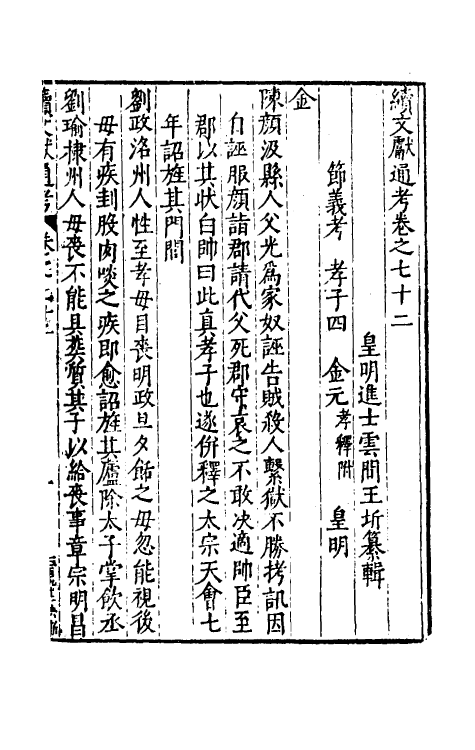 續文獻通考卷之七十二
皇明進士雲間王圻纂輯
節義考 孝子四 金元孝釋附 皇明
金
陳顏汲縣人父光爲家奴誣告賊殺人繫獄不勝拷訊因
自誣服顏詣郡請代父死郡守哀之不敢决適帥臣至
郡以其狀白帥曰此真孝子也遂併釋之太宗天會七
年詔旌其門閭
劉政洺州人性至孝母目喪明政旦夕餂之母忽能視後
母有疾刲股肉啖之疾即愈詔旌其廬除太子掌飲丞
劉瑜棣州人母喪不能具葬質其子以給喪事章宗明昌
續文獻通考 卷之七十二 一